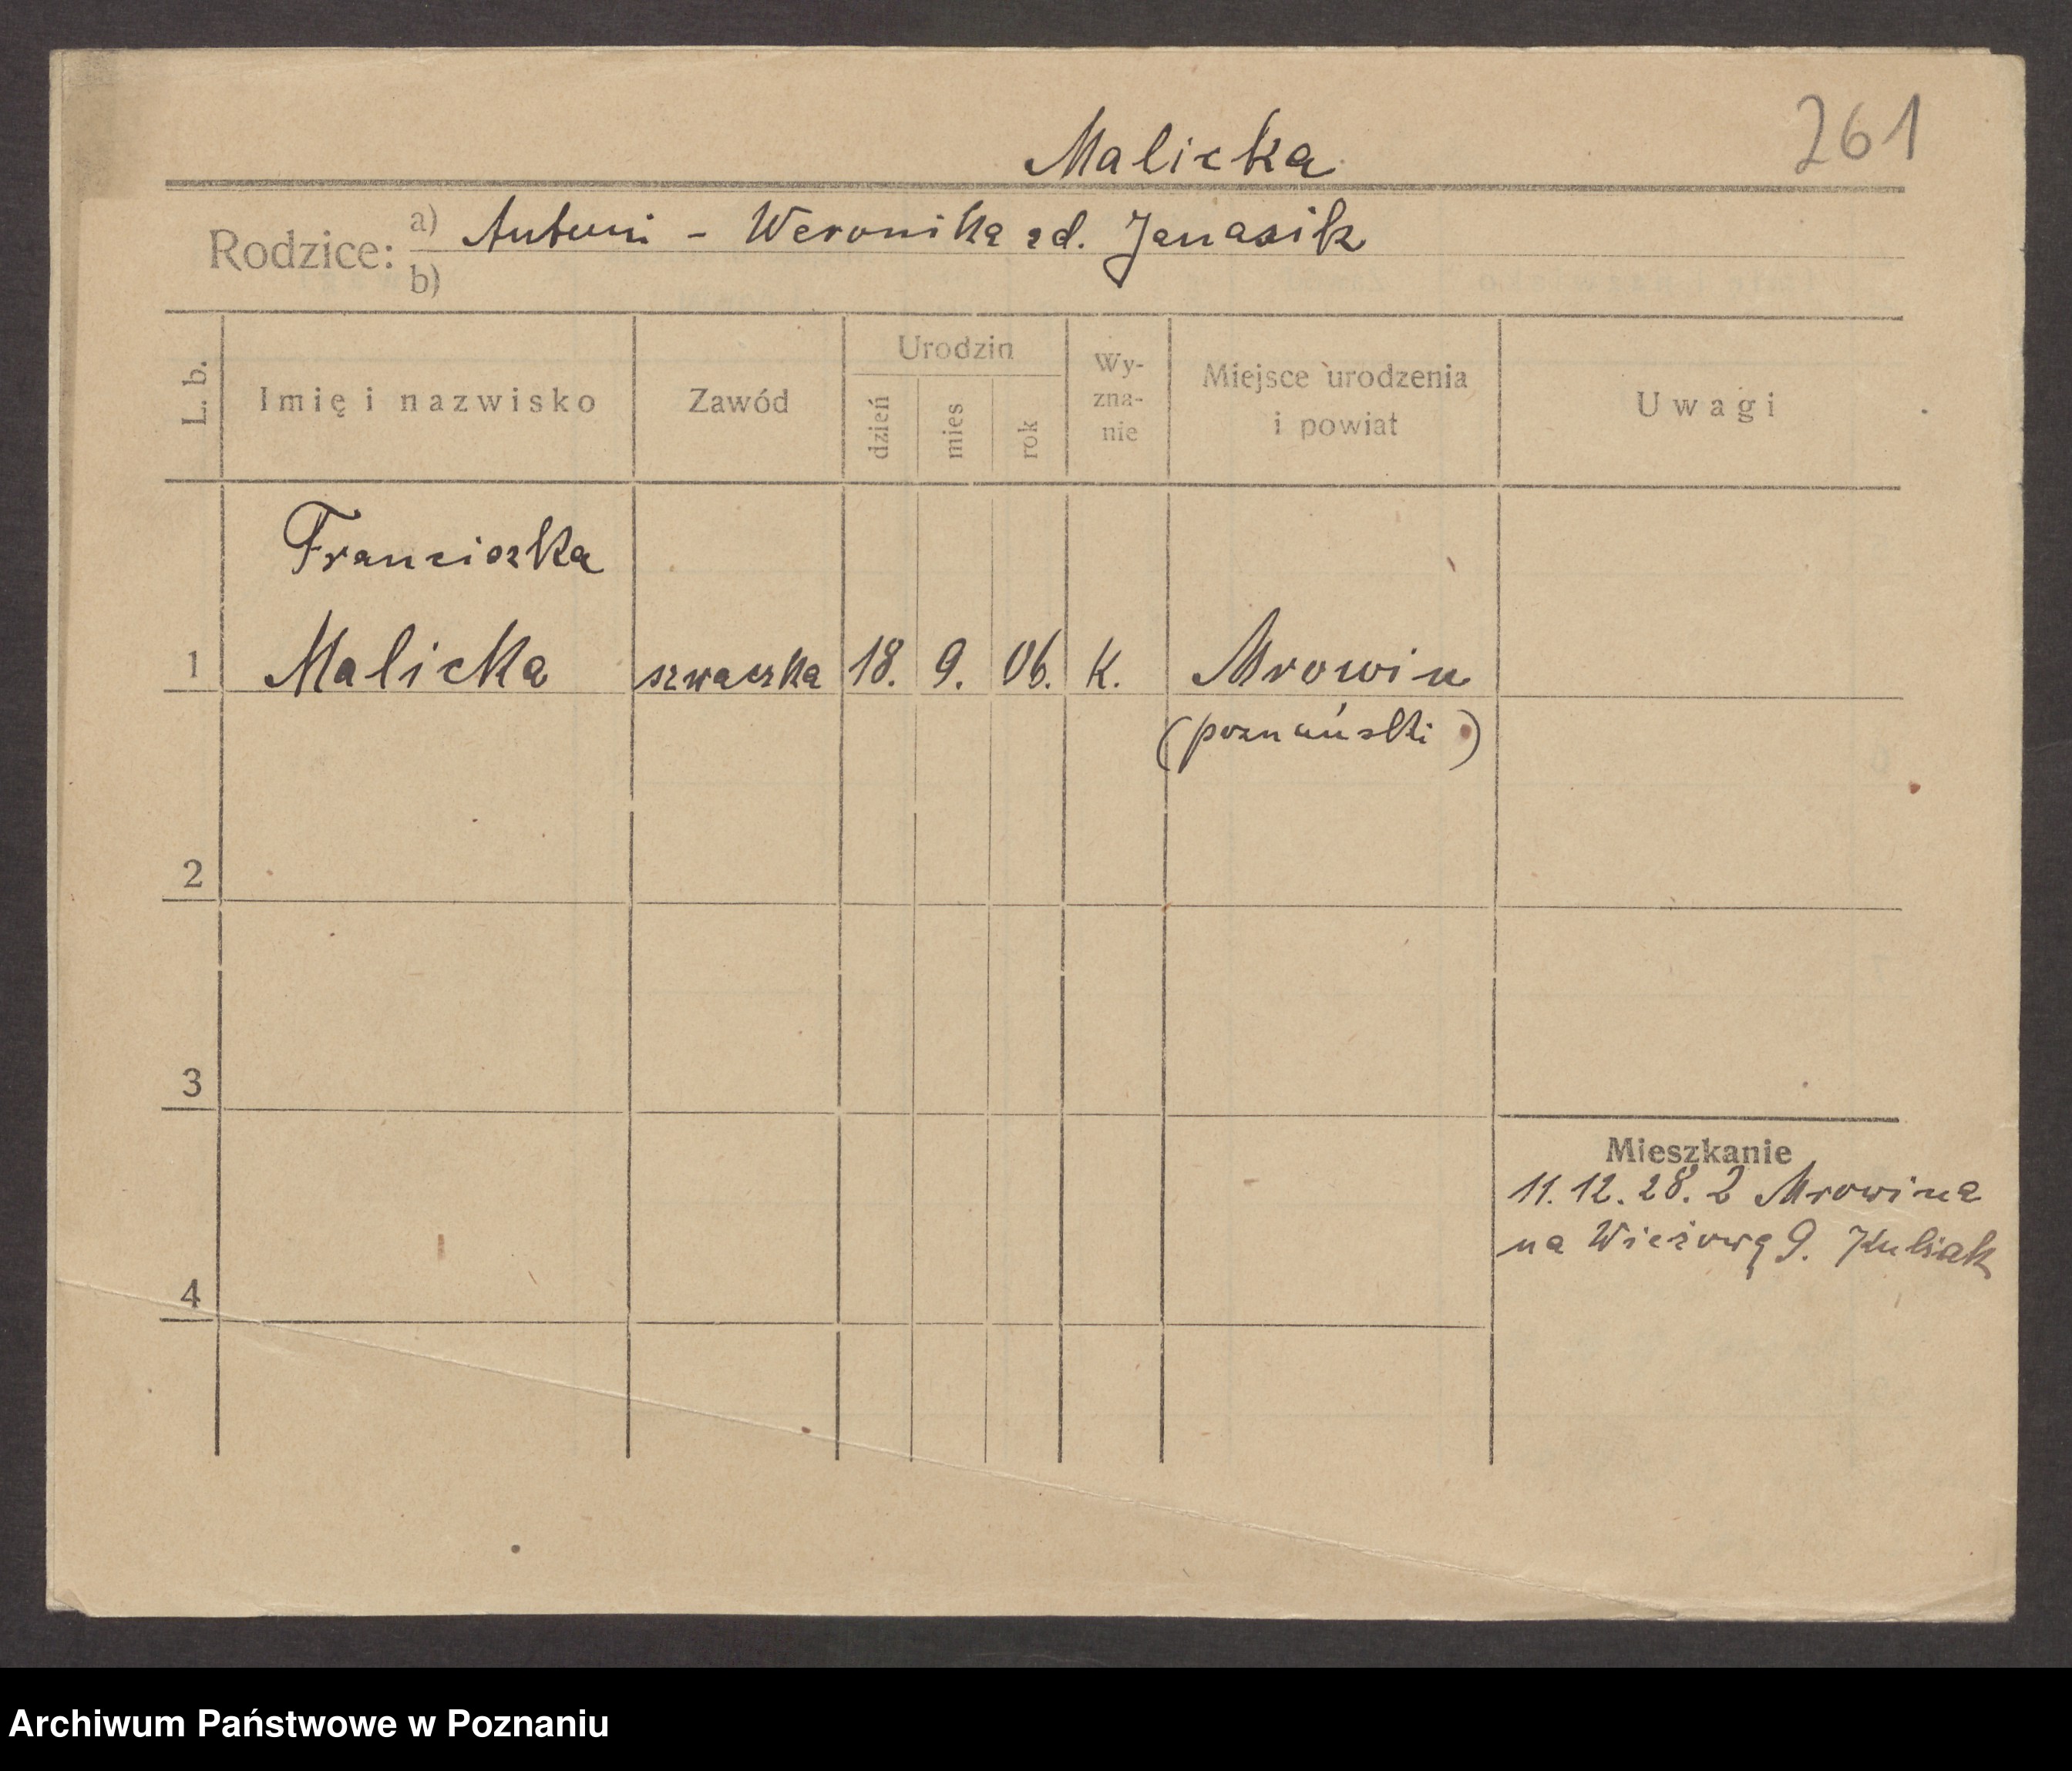 261
Malicka
Rodzice: a) Antoni - Weronika zd. Janasik
b)
L. b.
Imię i nazwisko
Zawód
Urodzin
dzień
mies
rok
Wy-
zna-
nie
Miejsce urodzenia
i powiat
Uwagi
Franciszka
1 Malicka szwaczka 18. 9. 06. K. Mrowin
(poznański)
2
3
Mieszkanie
11. 12. 28. Z Mrowina
na Wieżową 9. Kubiak
4
Archiwum Państwowe w Poznaniu